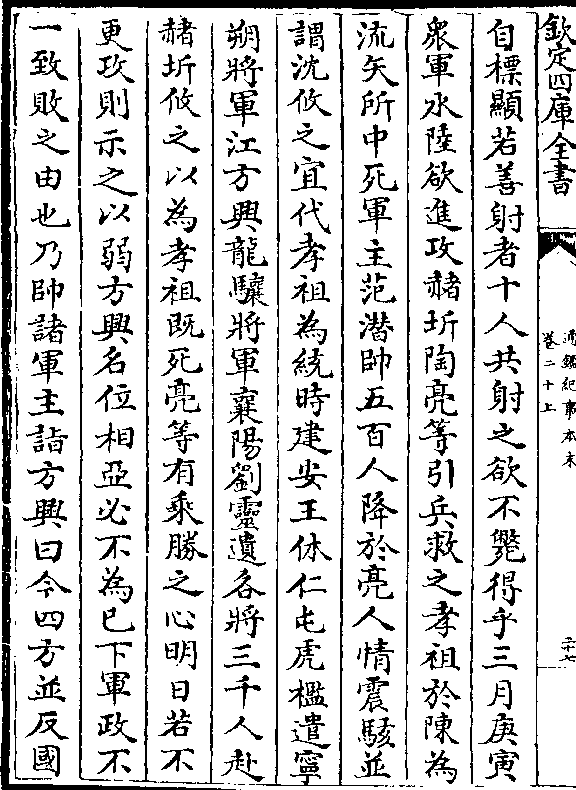 欽定四庫全書
通鑑紀事本末
卷二十上
二十七
自標顯若善射者十人共射之欲不斃得乎三月庚寅
衆軍水陸欲進攻赭圻陶亮等引兵救之孝祖於陳為
流矢所中死軍主范潛帥五百人降於亮人情震駭並
謂沈攸之宜代孝祖為統時建安王休仁屯虎檻遣寧
朔將軍江方興龍驤將軍襄陽劉靈遺各將三千人赴
赭圻攸之以為孝祖既死亮等有乘勝之心明日若不
更攻則示之以弱方興名位相亞必不為已下軍政不
一致敗之由也乃帥諸軍主詣方興曰今四方並反國